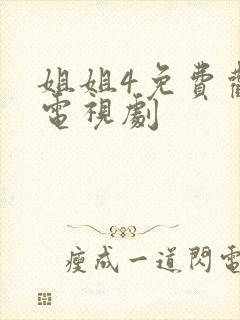 姐姐4免費
電視劇
瘦成一道閃電